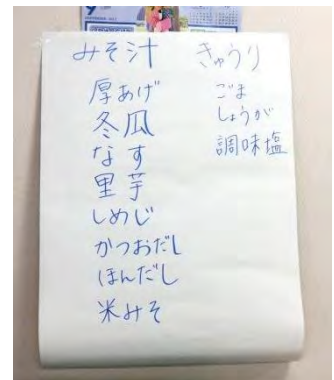 みそ汁
厚あげ
冬瓜
なす
里芋
しめじ
かつおだし
ほんだし
米みそ
きゅうり
ごま
しょうが
調味塩
9